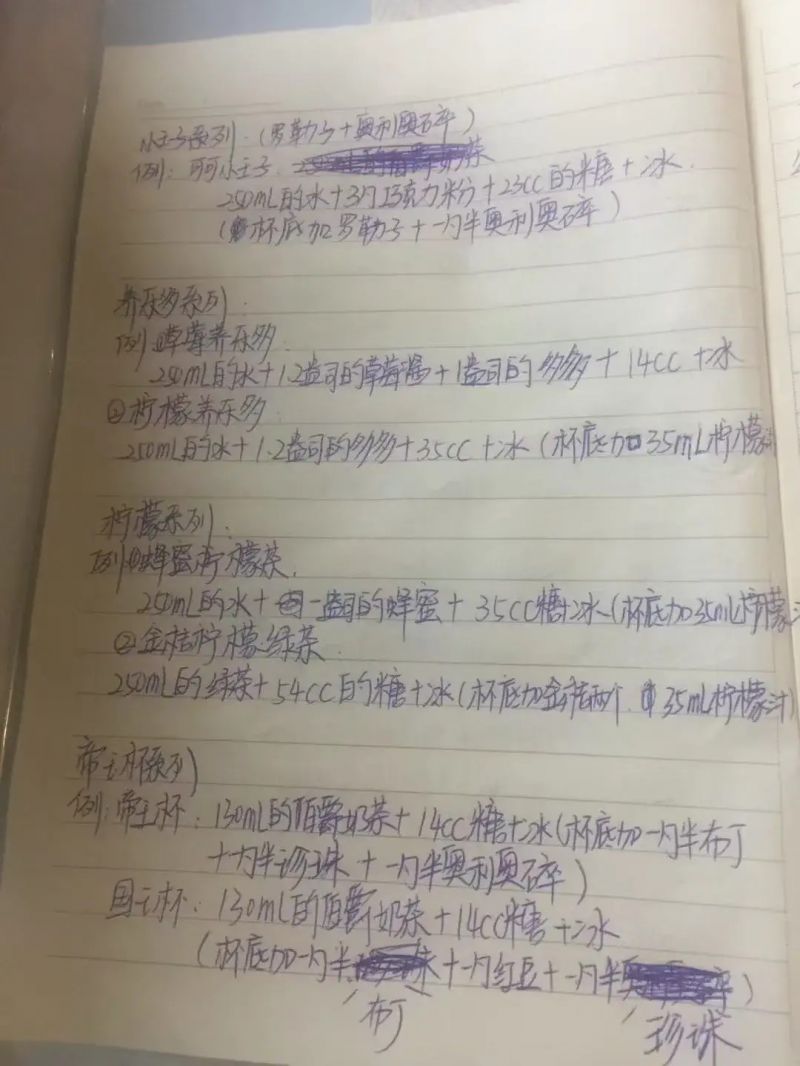 小王子系列.(罗勒子+奥利奥碎)
例: 可可小王子.
250mL的水+3勺巧克力粉+23cc的糖+冰.
(杯底加罗勒子+一勺半奥利奥碎)
养乐多系列.
例①草莓养乐多.
250mL的水+1.2盎司的草莓酱+1盎司的多多+14cc+冰
②柠檬养乐多.
250mL的水+1.2盎司的多多+35cc+冰(杯底加35mL柠檬
柠檬系列.
例①蜂蜜柠檬茶.
250mL的水+一盎司的蜂蜜+35cc糖+冰(杯底加35mL柠檬
②金桔柠檬绿茶.
250mL的绿茶+54cc的糖+冰(杯底加金桔两个.35mL柠檬汁)
帝王杯系列
例:帝王杯:130mL的伯爵奶茶+14cc糖+冰(杯底加一勺半布丁
+勺半珍珠+一勺半奥利奥碎)
国王杯:130mL的伯爵奶茶+14cc糖+冰
(杯底加一勺半+一勺红豆+一勺半)
布丁 珍珠